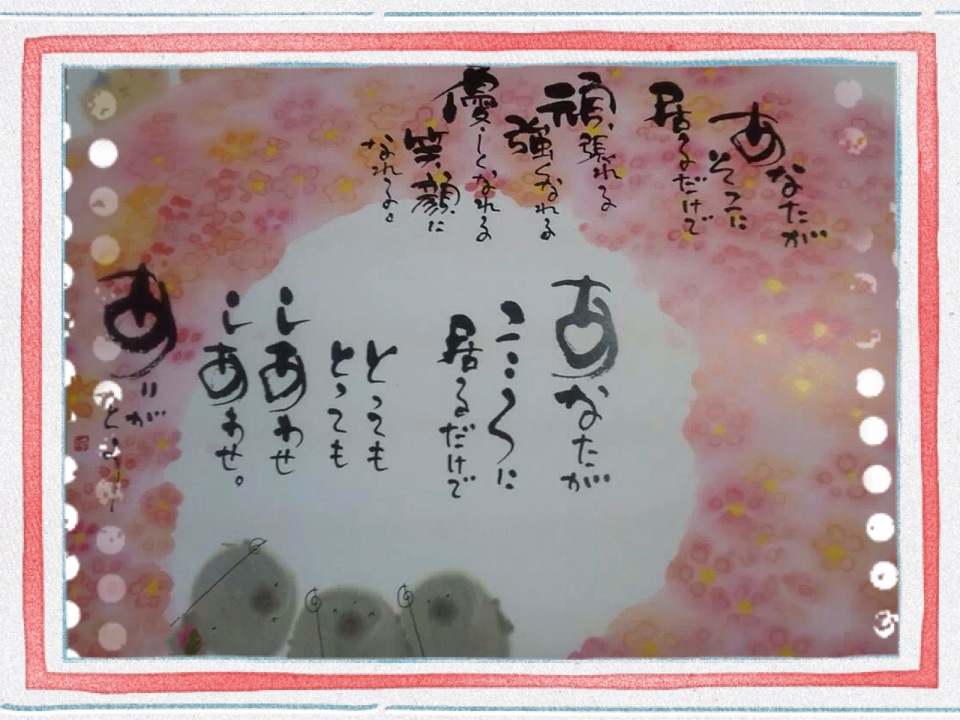 あなたが
そこに
居るだけで
頑張れる
強くなれる
優しくなれる
笑顔に
なれる。
あなたが
こころに
居るだけで
とっても
とっても
しあわせ
しあわせ。
ありが
とう